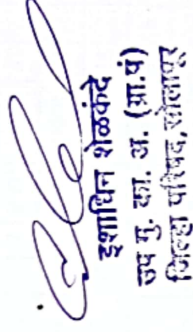 इशाधिन शेळकंदे
उप मु. का. अ. (ग्रा.पं)
जिल्हा परिषद, सोलापूर